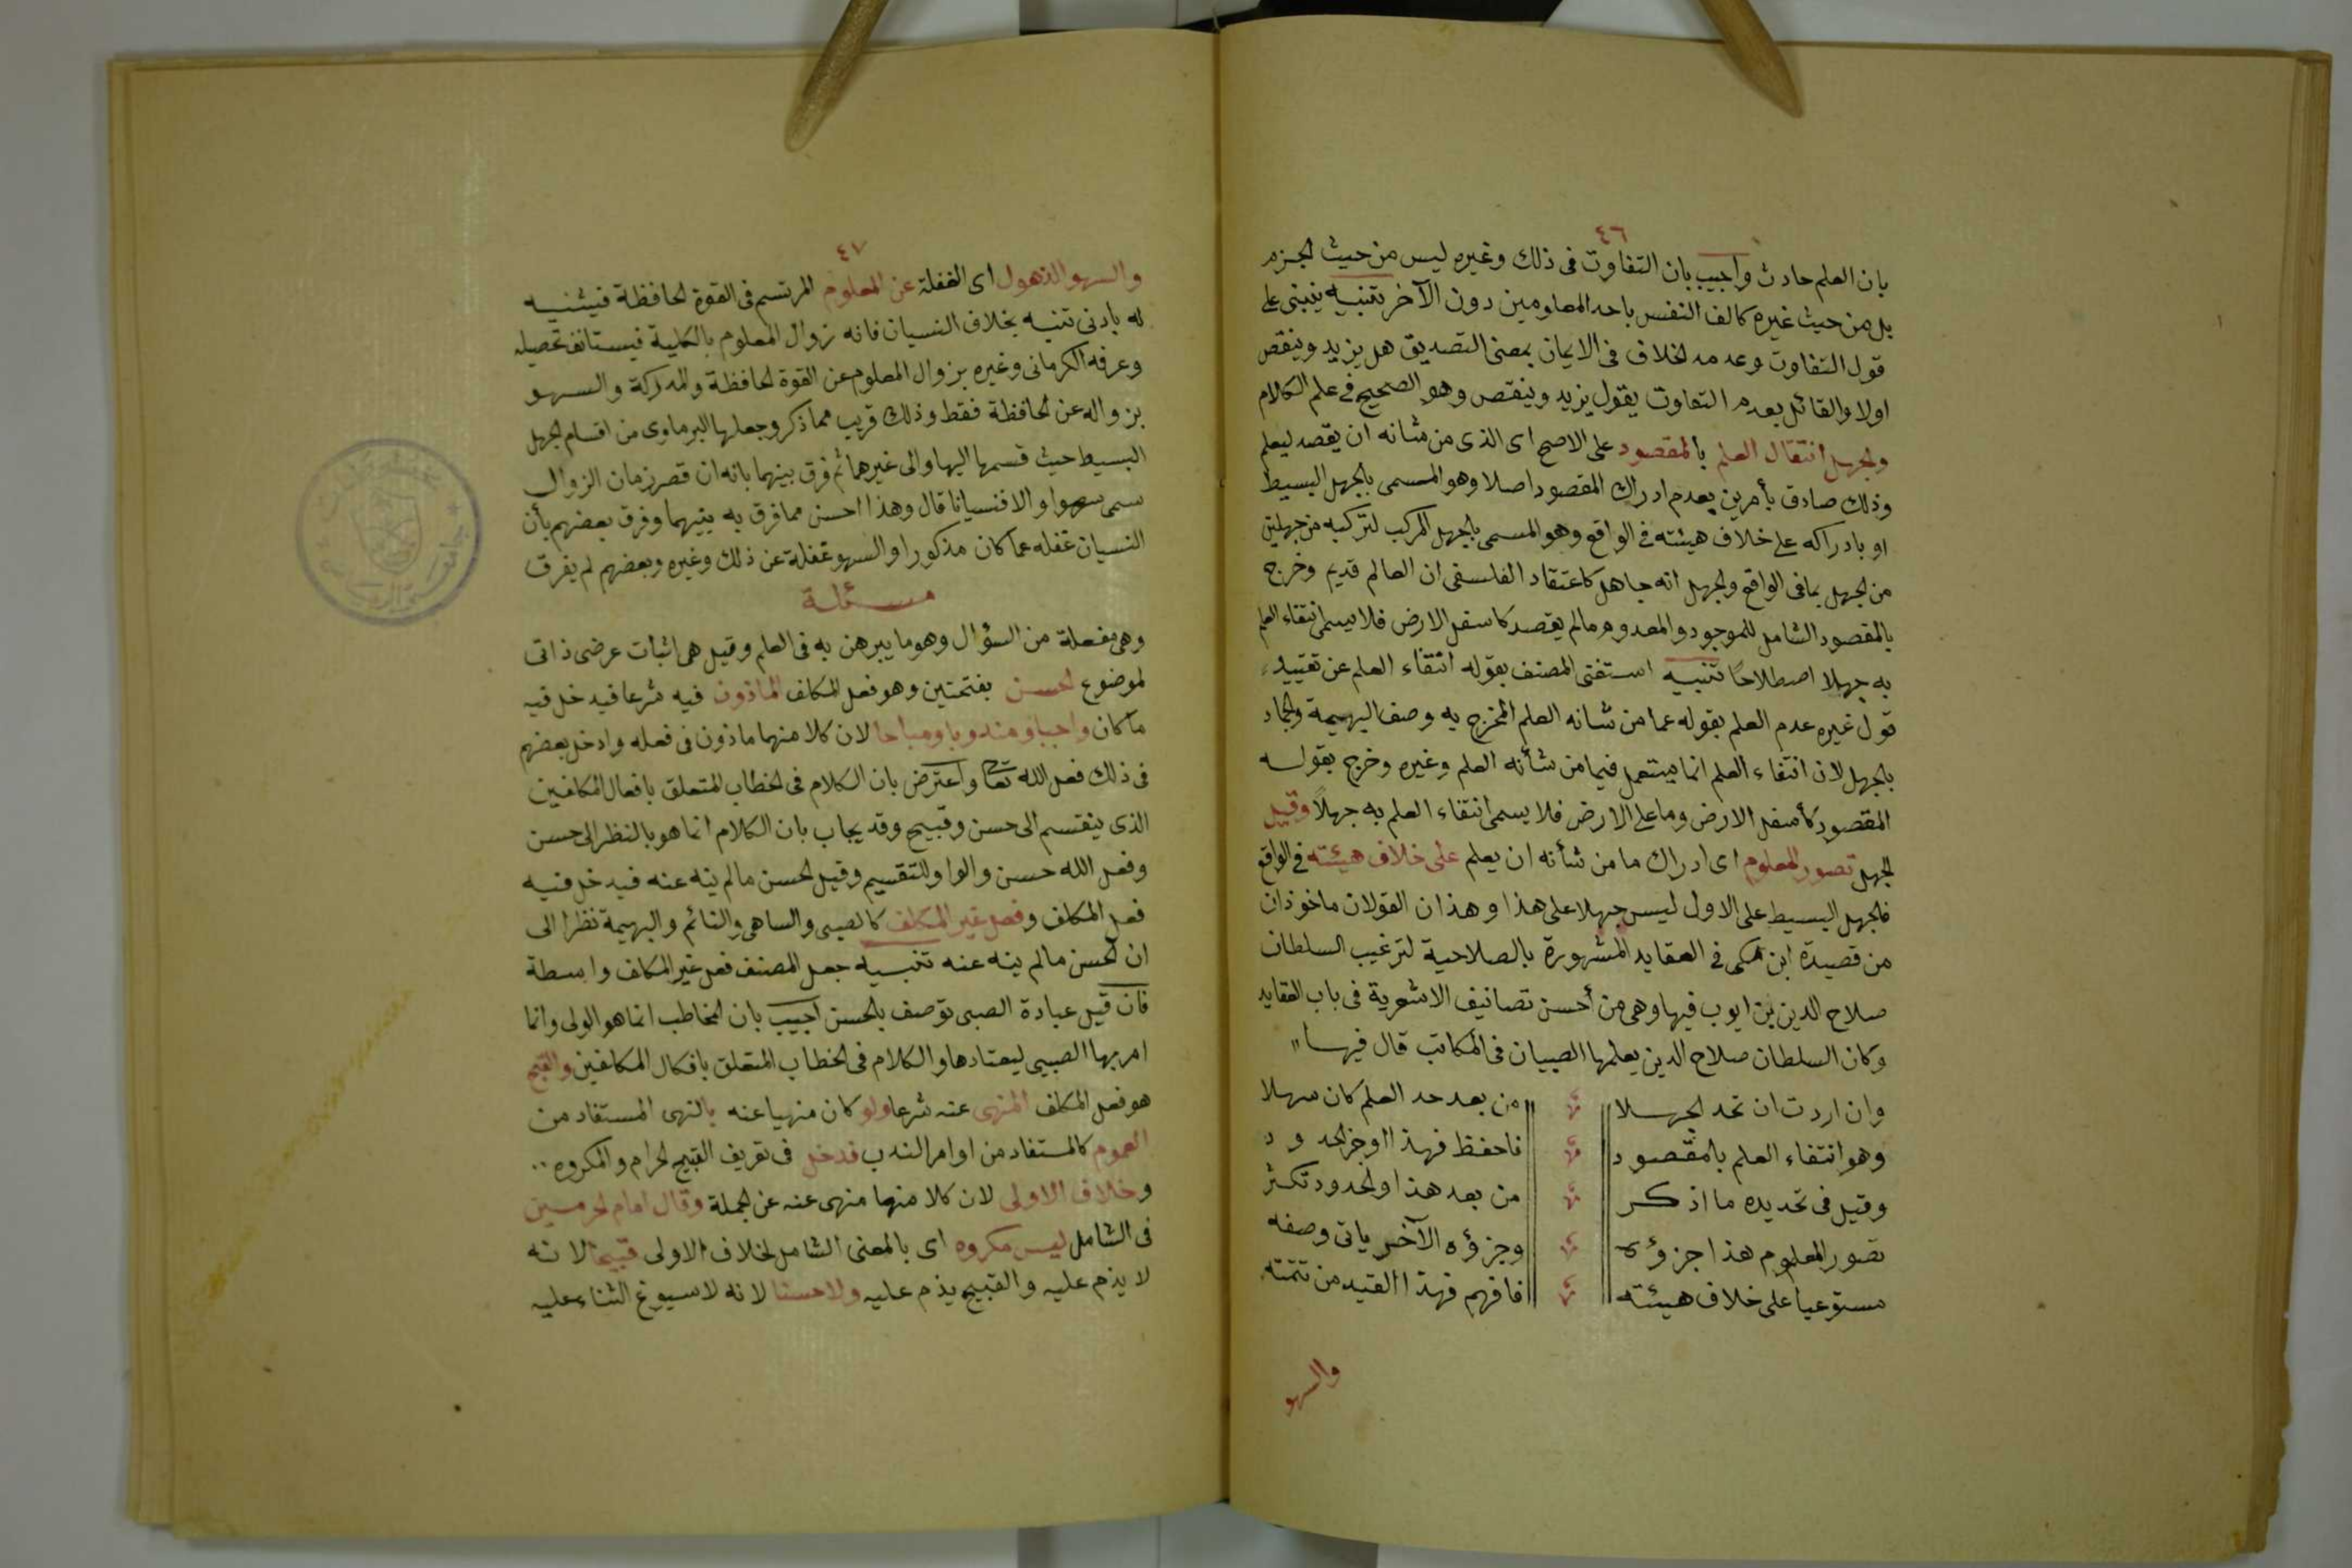 ٤٦
بان العلم حادث واجيب بان التفاوت فى ذلك وغيره ليس من حيث الجزم
بل من حيث غيره كالف النفس باحد المعلومين دون الآخر تنبيه ينبنى على
قول التفاوت وعدمه الخلاف فى الايمان بمعنى التصديق هل يزيد وينقص
اولا والقائل بعدم التفاوت يقول يزيد وينقص وهو الصحيح فى علم الكلام
والجهل انتقال العلم بالمقصود على الاصح اى الذى من شانه ان يقصد ليعلم
وذلك صادق بأمرين بعدم ادراك المقصود اصلا وهو المسمى بالجهل البسيط
او بادراكه على خلاف هيئته فى الواقع وهو المسمى بالجهل المركب لتركبه من جهلين
من الجهل بما فى الواقع والجهل انه جاهل كاعتقاد الفلسفى ان العالم قديم وخرج
بالمقصود الشامل للموجود والمعدوم مالم يقصد كاسفل الارض فلا يسمى انتقاء العلم
به جهلا اصطلاحًا تنبيه استغنى المصنف بقوله انتقاء العلم عن تقييد
قول غيره عدم العلم بقوله عما من شانه العلم المخرج به وصف البهيمة والجماد
بالجهل لان انتقاء العلم انما يستعمل فيما من شأنه العلم وغيره وخرج بقوله
المقصود كأسفل الارض وما على الارض فلا يسمى انتقاء العلم به جهلاً وقيل
الجهل تصور المعلوم اى ادراك ما من شأنه ان يعلم على خلاف هيئته فى الواقع
فالجهل البسيط على الاول ليس جهلا على هذا وهذان القولان ماخوذان
من قصيدة ابن مكى فى العقايد المشهورة بالصلاحية لترغيب السلطان
صلاح الدين بن ايوب فيها وهى من أحسن تصانيف الاشعرية فى باب العقايد
وكان السلطان صلاح الدين يعلمها الصبيان فى المكاتب قال فيها
وان اردت ان تحد الجهلا من بعد حد العلم كان سهلا
وهو انتفاء العلم بالمقصود فاحفظ فهذا اوجز الحدود
وقيل فى تحديده ما اذكر من بعد هذا والحدود تكثر
تصور المعلوم هذا جزؤه وجزؤه الآخر ياتى وصفه
مستوعيا على خلاف هيئته فافهم فهذا القيد من تتمته
والسهو
٤٧
والسهو الذهول اى الغفلة عن المعلوم المرتسم فى القوة الحافظة فيتنبه
له بادنى تنبيه بخلاف النسيان فانه زوال المعلوم بالكلية فيستانف تحصيله
وعرفه الكرمانى وغيره بزوال المعلوم عن القوة الحافظة والمدركة والسهو
بزواله عن الحافظة فقط وذلك قريب مما ذكر وجعلها البرماوى من اقسام الجهل
البسيط حيث قسمها اليها والى غيرهما ثم فرق بينهما بانه ان قصر زمان الزوال
سمى سهوا والا فنسيانا قال وهذا احسن مما فرق به بينهما وفرق بعضهم بأن
النسيان غفله عما كان مذكورا والسهو غفلة عن ذلك وغيره وبعضهم لم يفرق
مسئلة
وهى مفعلة من السؤال وهو ما يبرهن به فى العلم وقيل هى اثبات عرضى ذاتى
لموضوع الحسن بفتحتين وهو فعل المكلف الماذون فيه شرعا فيدخل فيه
ما كان واجبا ومندوبا ومباحا لان كلا منها ماذون فى فعله وادخل بعضهم
فى ذلك فعل الله تعا واعترض بان الكلام فى الخطاب المتعلق بافعال المكلفين
الذى ينقسم الى حسن وقبيح وقد يجاب بان الكلام انما هو بالنظر الى حسن
وفعل الله حسن والواو للتقسيم وقيل الحسن مالم ينه عنه فيدخل فيه
فعل المكلف وفعل غير المكلف كالصبى والساهى والنائم والبهيمة نظرا الى
ان الحسن مالم ينه عنه تنبيه جعل المصنف فعل غير المكلف واسطة
فان قيل عبادة الصبى توصف بالحسن اجيب بان المخاطب انما هو الولى وانما
امر بها الصبى ليعتادها والكلام فى الخطاب المتعلق بافكال المكلفين والقبيح
هو فعل المكلف المنهى عنه شرعا ولو كان منهيا عنه بالنهى المستفاد من
العموم كالمستفاد من اوامر الندب فدخل فى تعريف القبيح الحرام والمكروه
وخلاف الاولى لان كلا منها منهى عنه عن الجملة وقال امام الحرمين
فى الشامل ليس مكروه اى بالمعنى الشامل لخلاف الاولى قبيحا لانه
لا يذم عليه والقبيح يذم عليه ولا حسنا لانه لا يسوغ الثناء عليه